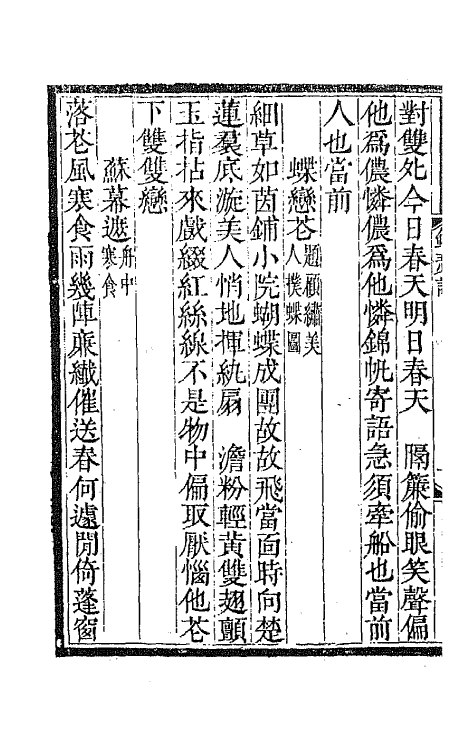 對雙死今日春天明日春天　隔簾偷眼笑聲偏
他爲儂憐儂爲他憐錦帆寄語急須牽船也當前
人也當前
蝶戀花題顧繡美人撲蝶圖
細草如茵鋪小院蝴蝶成團故故飛當面時向楚
蓮羣底漩美人悄地揮紈扇　澹粉輕黃雙翅顫
玉指拈來戲綴紅絲線不是物中偏取厭惱他花
下雙雙戀
蘇幕遮舟中寒食
落花風寒食雨幾陣廉纖催送春何遽閒倚蓬窗